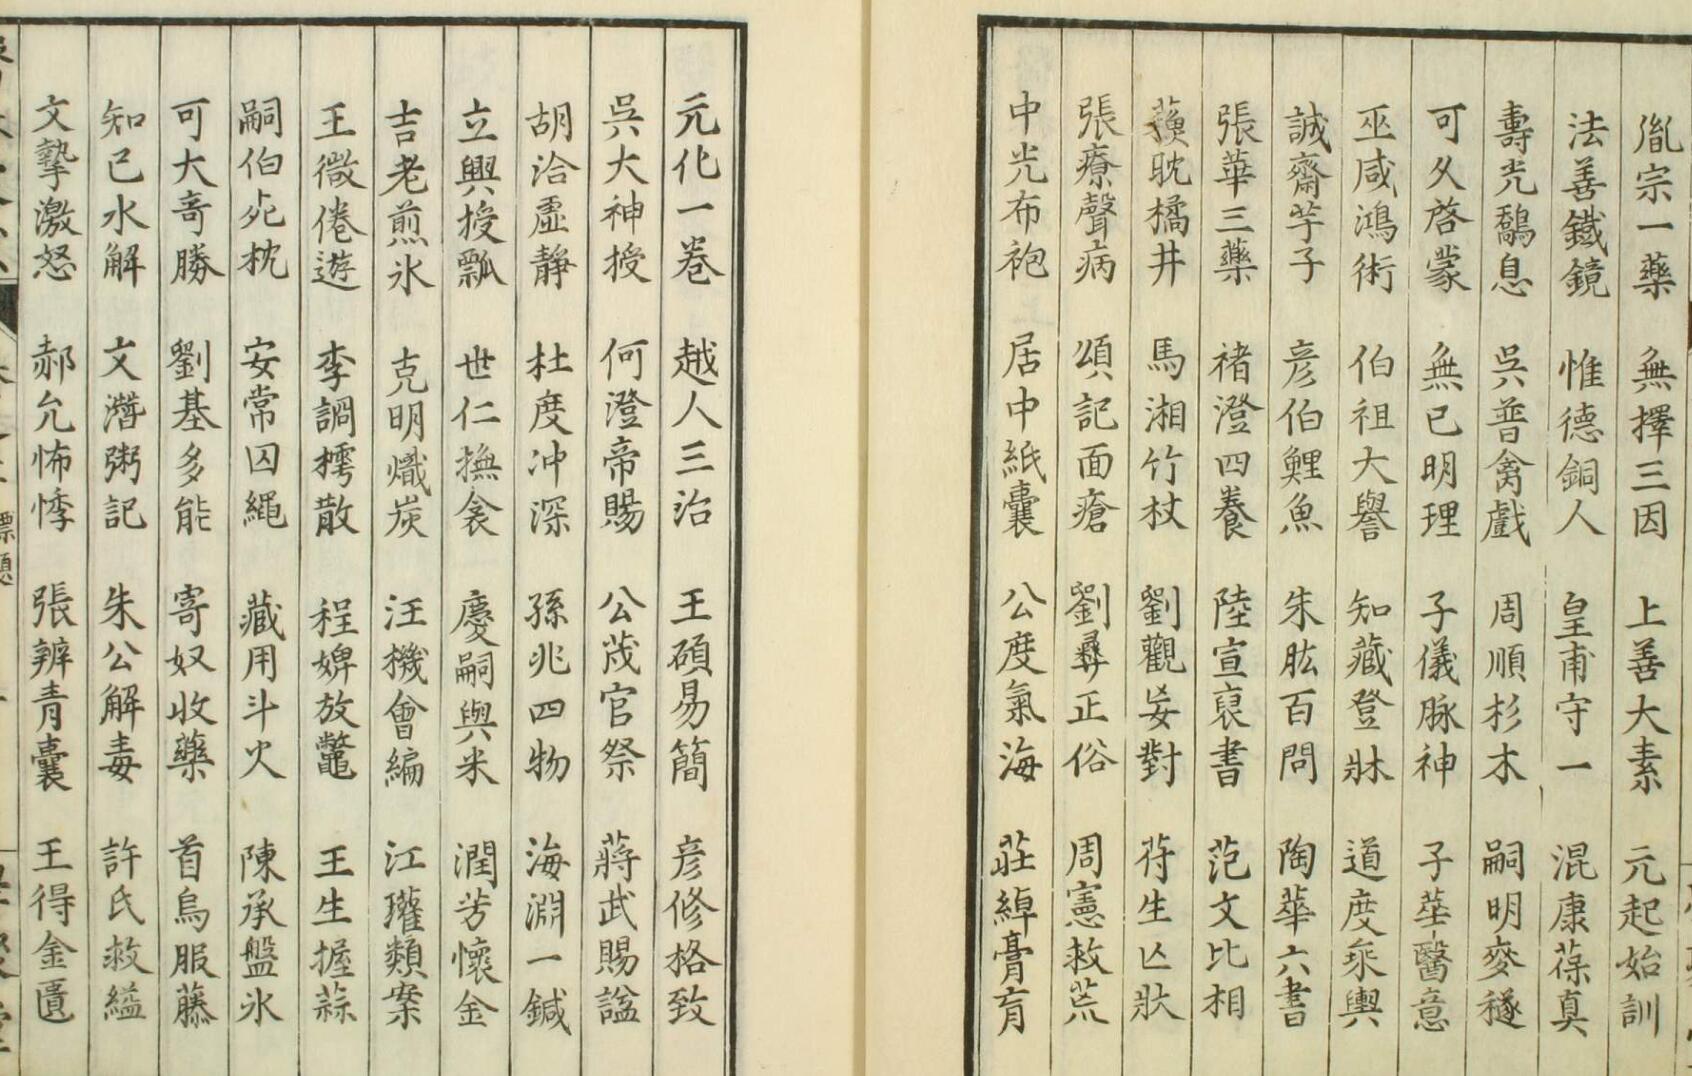 胤宗一藥 無擇三因 上善大素 元起始訓
法善鐵鏡 惟德銅人 皇甫守一 混康葆真
壽光鷊息 吳普禽戲 周順杉木 嗣明麥𥢧
可久啓蒙 無已明理 子儀脉神 子華醫意
巫咸鴻術 伯祖大譽 知藏登牀 道度乘輿
誠齋芋子 彦伯鯉魚 朱肱百問 陶華六書
張華三藥 禇澄四養 陸宣裒書 范文比相
蘓耽橘井 馬湘竹杖 劉觀妄對 苻生亡狀
張療聲病 頌記面瘡 劉彛正俗 周憲救荒
中光布袍 居中紙囊 公度氣海 莊綽膏肓
元化一卷 越人三治 王碩易簡 彦修格致
吳大神授 何澄帝賜 公茂官祭 蔣武賜諡
胡洽虛靜 杜度冲深 孫兆四物 海淵一鍼
立興授瓢 世仁撫衾 慶嗣與米 潤芳懷金
吉老煎氷 克明熾炭 汪機會編 江瓘類案
王微倦遊 李調樗散 程婢放鼈 王生握蒜
嗣伯死枕 安常囚繩 藏用斗火 陳承盤氷
可大竒勝 劉基多能 寄奴收藥 首烏服藤
知已水解 文濳粥記 朱公解毒 許氏救縊
文摯激怒 郝允怖悸 張辨青囊 王得金匱
標題